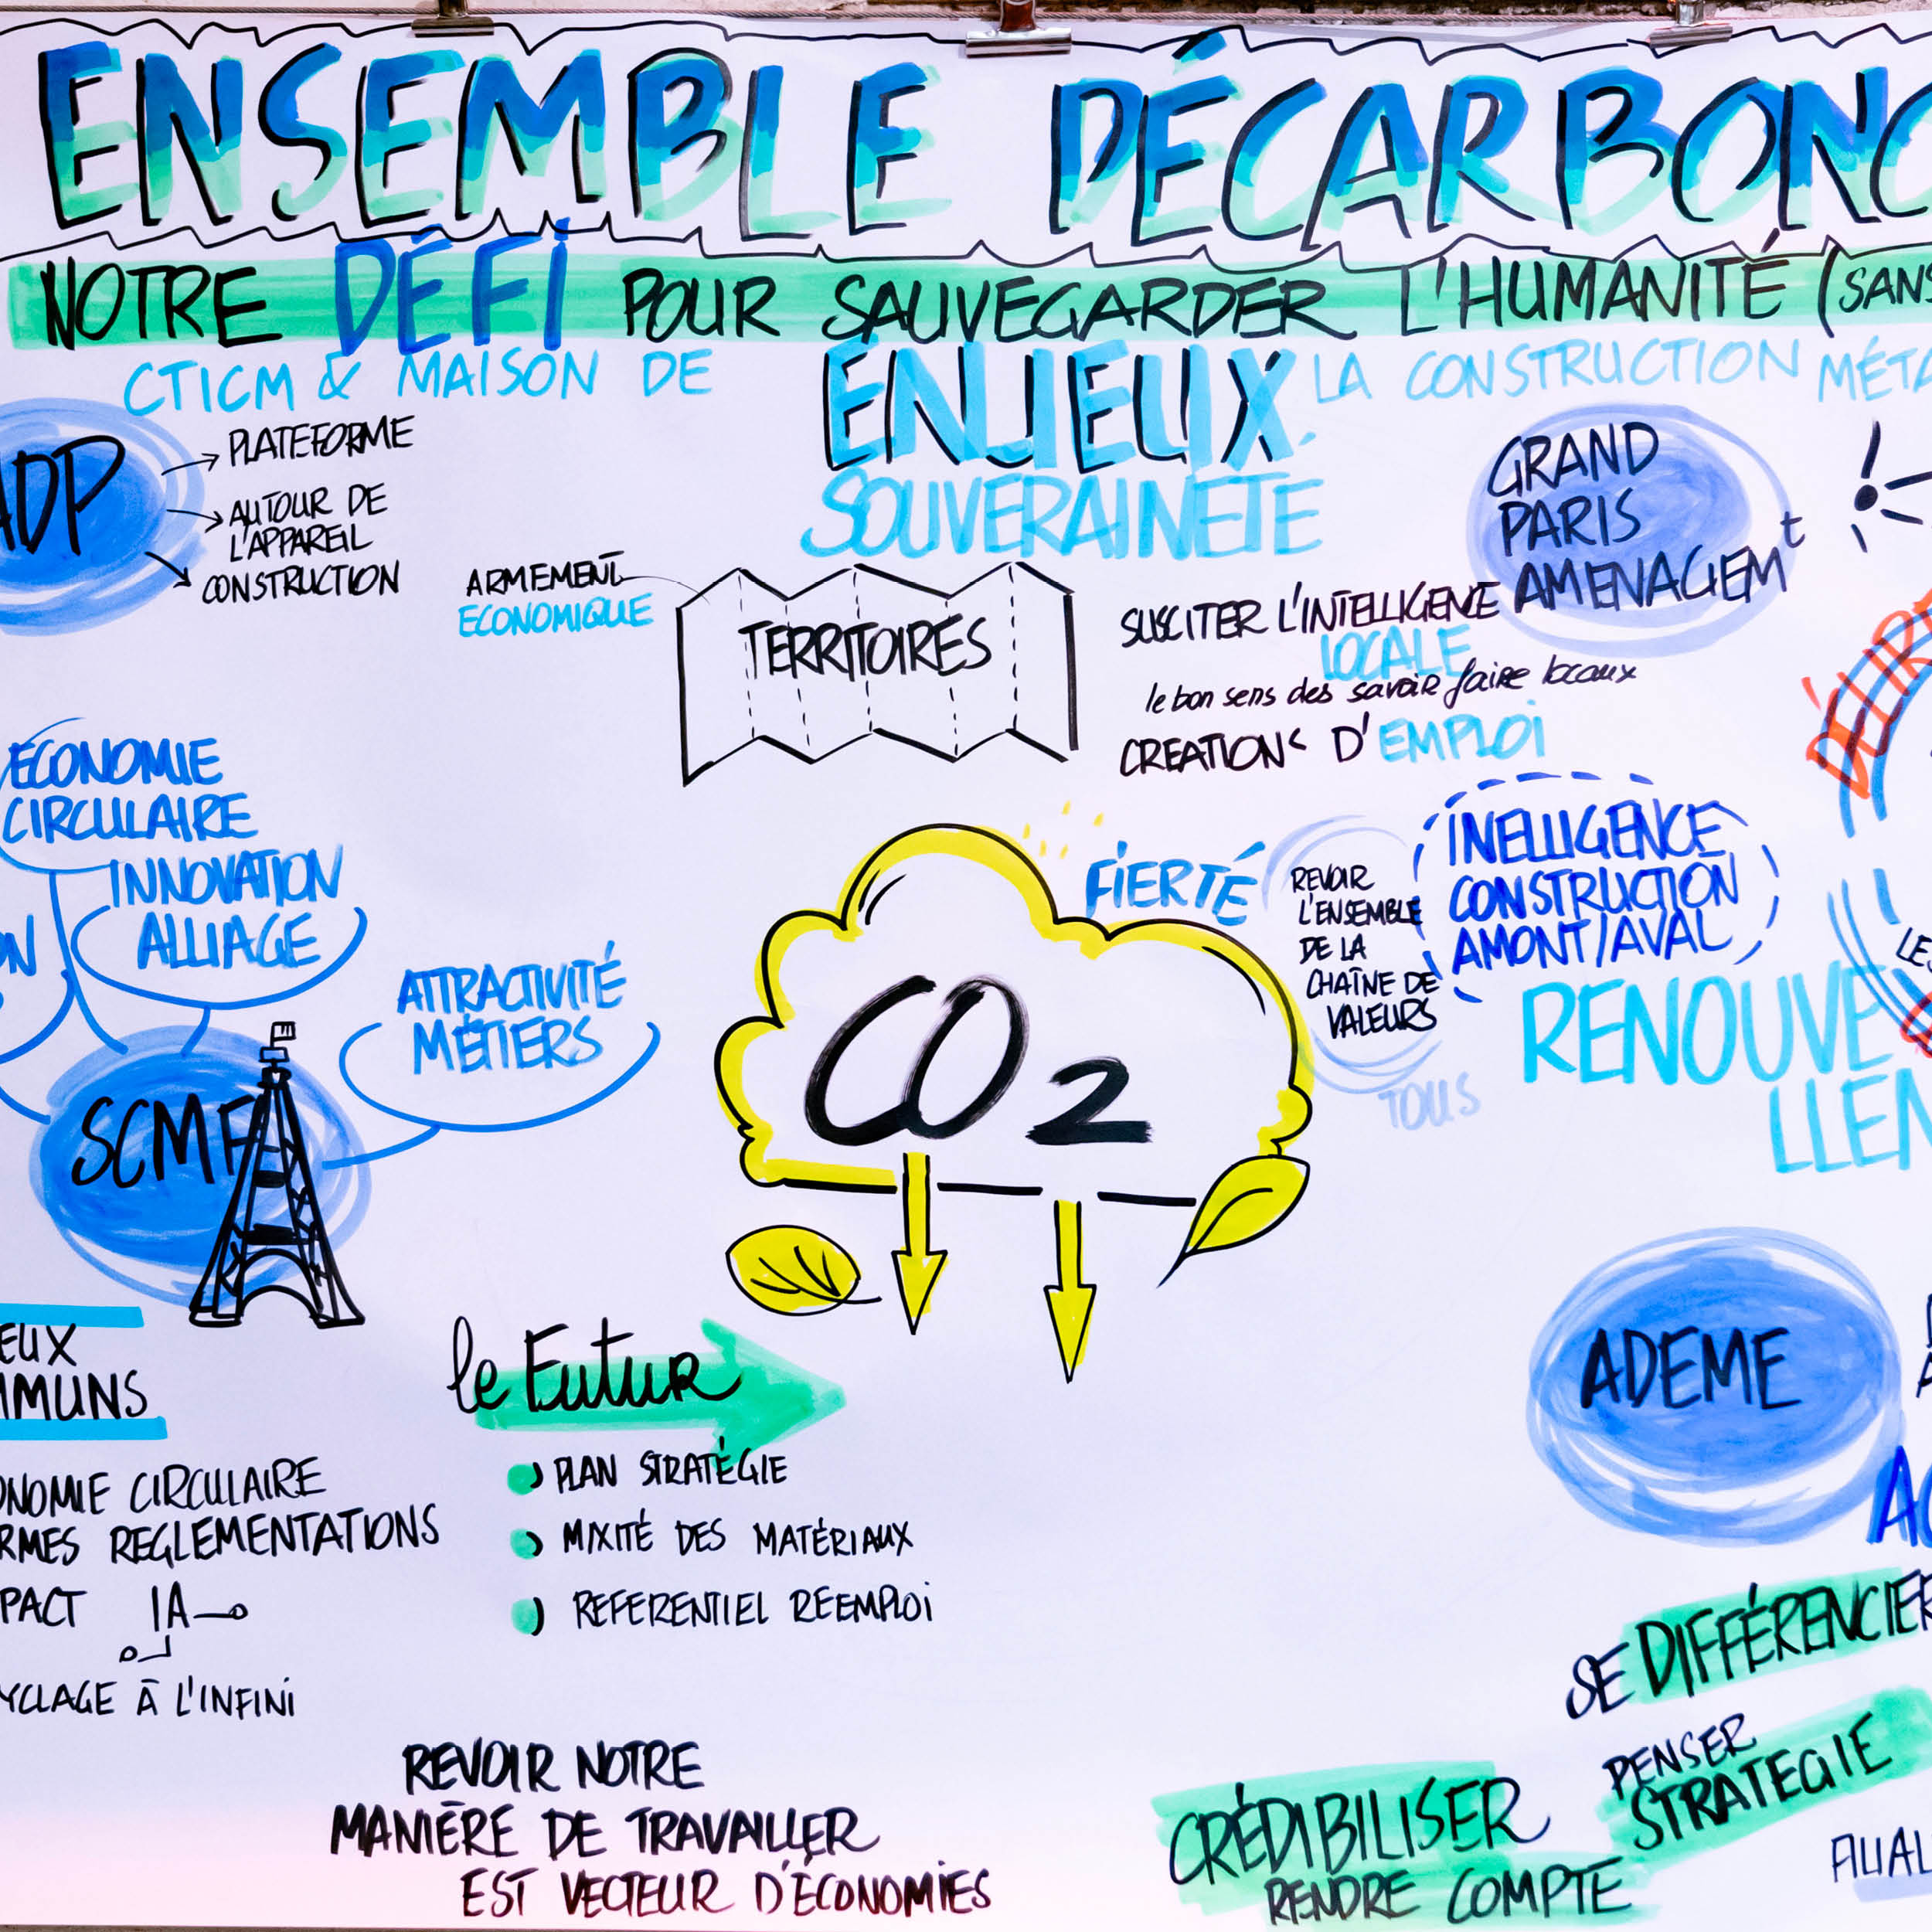 ENSEMBLE DÉCARBONO
NOTRE DÉFI POUR SAUVEGARDER L'HUMANITÉ (SANS
CTICM & MAISON DE LA CONSTRUCTION MÉTA
ENJEUX
SOUVERAINETÉ
ADP
PLATEFORME
AUTOUR DE
L'APPAREIL
CONSTRUCTION
ARMEMENT
ECONOMIQUE
TERRITOIRES
GRAND
PARIS
AMENAGEMt
SUSCITER L'INTELLIGENCE
LOCALE
le bon sens des savoir faire locaux
CREATIONS D'EMPLOI
ECONOMIE
CIRCULAIRE
INNOVATION
ALLIAGE
ON
ATTRACTIVITÉ
MÉTIERS
SCMF
CO2
FIERTÉ
REVOIR
L'ENSEMBLE
DE LA
CHAÎNE DE
VALEURS
TOUS
INELLIGENCE
CONSTRUCTION
AMONT/AVAL
RENOUVE
LLEM
LES
EUX
MMUNS
ONOMIE CIRCULAIRE
RMES REGLEMENTATIONS
PACT IA
YCLAGE À L'INFINI
le Futur
PLAN STRATÉGIE
MIXITÉ DES MATÉRIAUX
REFERENTIEL REEMPLOI
REVOIR NOTRE
MANIÈRE DE TRAVAILLER
EST VECTEUR D'ÉCONOMIES
ADEME
SE DIFFÉRENCIER
PENSER
STRATEGIE
CRÉDIBILISER
RENDRE COMPTE